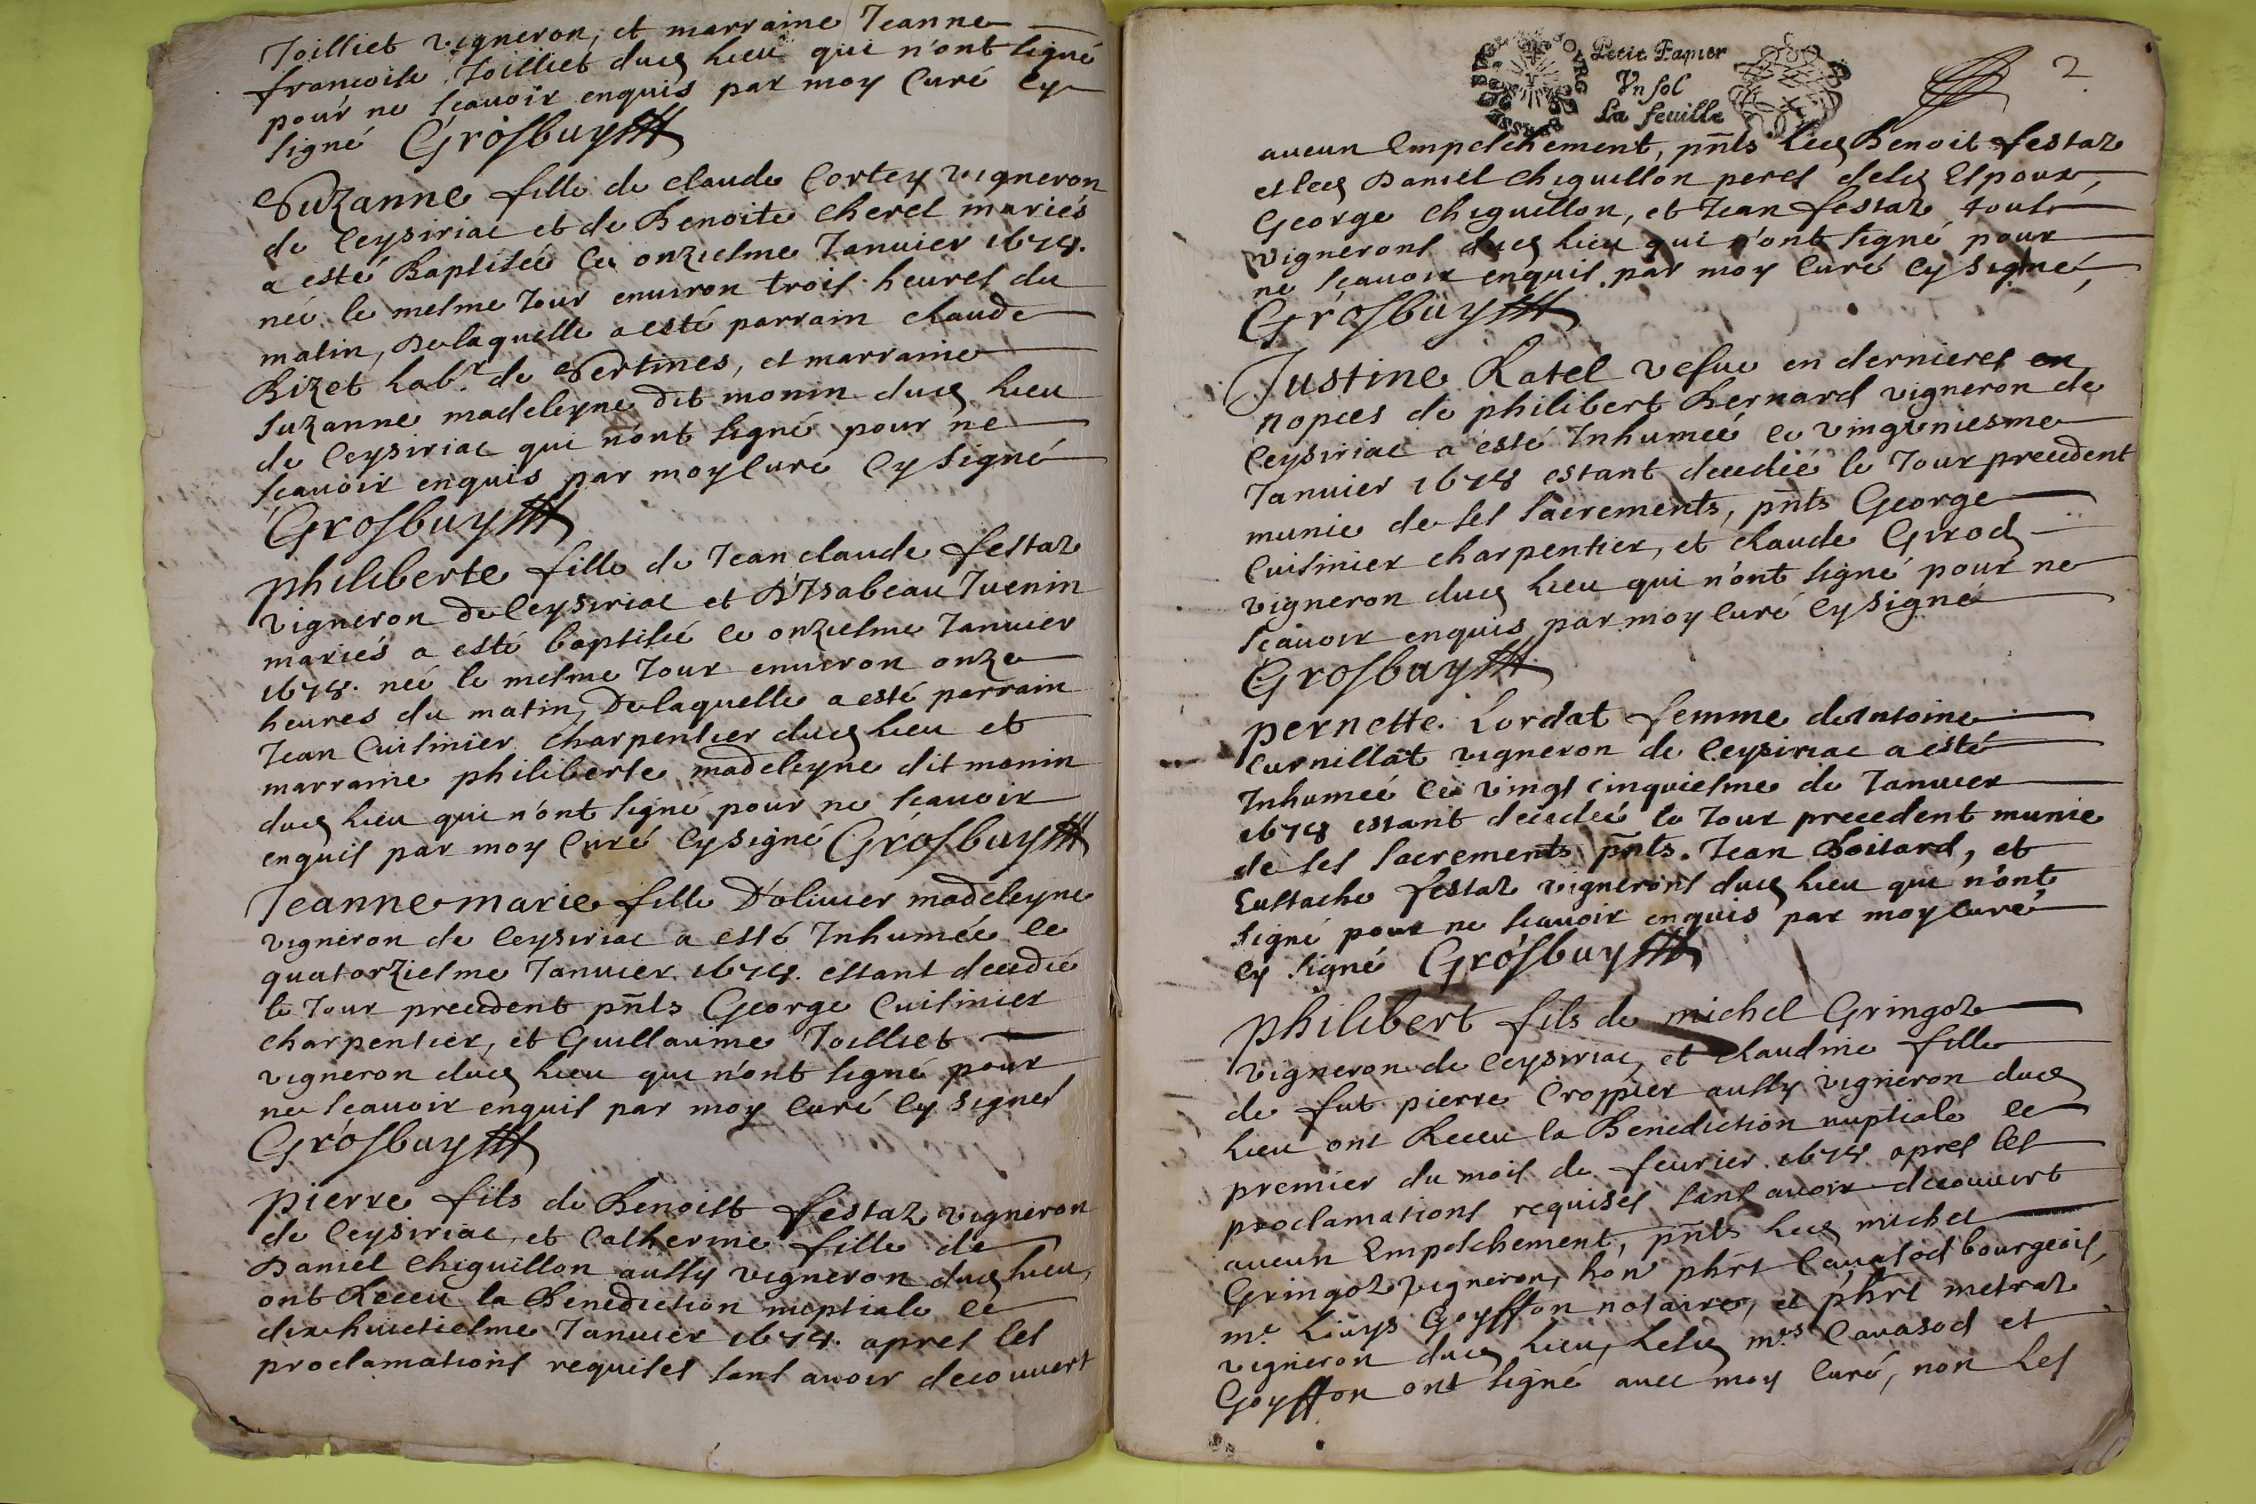 Joilliet vigneron, et marraine Jeanne
francoise Joilliet dud lieu qui n'ont signé
pour ne scavoir enquis par moy Curé cy
signé Grosbuy
Suzanne fille de claude Cortey vigneron
de Ceysiriac et de Benoite Cherel mariés
a esté Baptisée le onziesme Januier 1674.
née le mesme Jour enuiron trois heures du
matin, De laquelle a esté parrain claude
Bizet lab.r de Sertines, et marraine
Suzanne madeleyne dit monin dud lieu
de Ceysiriac qui n'ont signé pour ne
scauoir enquis par moy Curé Cy signé
Grosbuy
philiberte fille de Jean claude festaz
vigneron de Ceysiriac et D'Isabeau Juenin
mariés a esté baptisée le onziesme Januier
1674. née le mesme Jour enuiron onze
heures du matin, De laquelle a esté parrain
Jean Cuisinier charpentier dud lieu et
marraine philiberte madeleyne dit monin
dud lieu qui n'ont signé pour ne scauoir
enquis par moy Curé Cy signé Grosbuy
Jeanne marie fille D'oliuier madeleyne
vigneron de Ceysiriac a esté Inhumée le
quatorziesme Januier 1674. estant decedée
le Jour precedent pñts George Cuisinier
charpentier, et Guillaume Joilliet
vigneron dud lieu qui n'ont signé pour
ne scauoir enquis par moy Curé Cy signé
Grosbuy
pierre fils de Benoist festaz vigneron
de Ceysiriac, et Catherine fille de
Daniel Chiguillon aussy vigneron dud lieu,
ont Receu la Benediction nuptiale le
dix huictiesme Januier 1674. apres les
proclamations requises sans avoir decouvert
Petit Papier
Vn sol
La feuille
2
aucun Empeschement, pñts led Benoit festaz
et led Daniel Chiguillon peres desd Espoux,
George Chiguillon, et Jean festaz tous
vignerons dud lieu qui n'ont signé pour
ne scauoir enquis par moy Curé Cy signé,
Grosbuy
Justine Ratel vefue en dernieres en
nopces de philibert Bernard vigneron de
Ceysiriac a esté Inhumée le vingtiesme
Januier 1674 estant decedée le Jour precedent
munie de ses sacrements, pñts George
Cuisinier charpentier, et claude Girod
vigneron dud lieu qui n'ont signé pour ne
scauoir enquis par moy Curé Cy signé
Grosbuy
pernette Lordat femme d'Antoine
Curnillat vigneron de Ceysiriac a esté
Inhumée le vingt cinquiesme de Januier
1674 estant decedée le Jour precedent munie
de ses sacrements pñts. Jean Boitard, et
Eustache festaz vignerons dud lieu qui n'ont
signé pour ne scauoir enquis par moy Curé
Cy signé Grosbuy
philibert fils de michel Gringoz
vigneron de Ceysiriac, et claudine fille
de fut pierre Croppier aussy vigneron dud
lieu ont Receu la Benediction nuptiale le
premier du mois de feurier 1674 apres les
proclamations requises sans auoir decouuert
aucun Empeschement, pñts led michel
Gringoz vigneron, hon phrt Cauasod bourgeois,
m.e Liuys Goyffon notaire, et phrt metraz
vigneron dud lieu, Lesd m.es Cauasod et
Goyffon ont signé auec moy Curé, non les